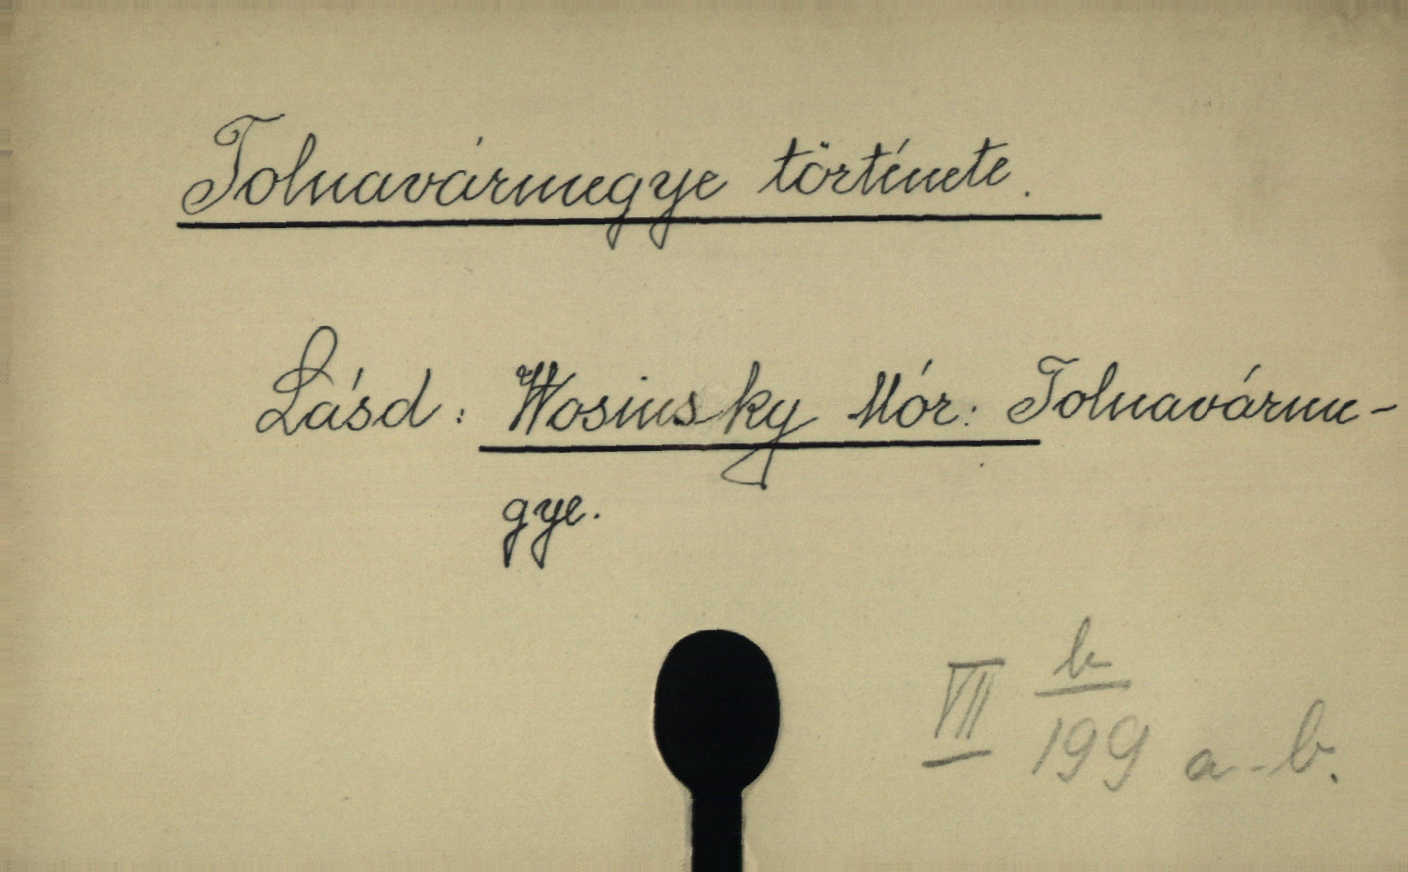 Tolnavármegye története.
Lásd: Wosinsky Mór: Tolnavárme-
gye.
VII b/199 a-b.